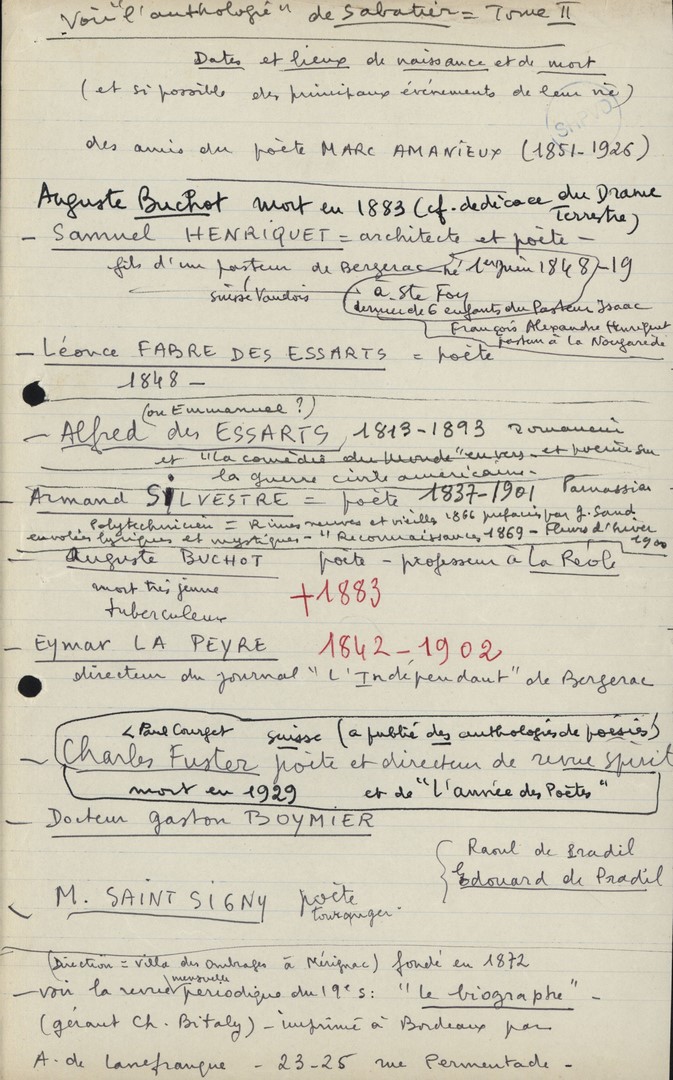 Voir "l'anthologie" de Sabatier = Tome II
Dates et lieux de naissance et de mort
(et si possible des principaux événements de leur vie)
des amis du poète MARC AMANIEUX (1851-1926)
Auguste Buchot mort en 1883 (cf. dédicace du Drame Terrestre)
- Samuel HENRIQUET = architecte et poète -
fils d'un pasteur de Bergerac né 1er juin 1848-19
suisse Vaudois
à Ste Foy
dernier de 6 enfants du Pasteur Isaac
François Alexandre Henriquet
pasteur à La Nougarède
- Léonce FABRE DES ESSARTS = poète
1848 -
(ou Emmanuel ?)
- Alfred des ESSARTS, 1813-1893 romancier
et "La comédie du monde" en vers - et poème sur
la guerre civile américaine -
- Armand SILVESTRE = poète 1837-1901 Parnassien
Polytechnicien = Rimes neuves et vieilles 1866 préfacés par G. Sand
envolées lyriques et mystiques - "Reconnaissances 1869 - Fleurs d'hiver
1900
- Auguste BUCHOT poète - professeur à La Réole
mort très jeune +1883
tuberculeux
- Eymar LA PEYRE 1842-1902
directeur du journal "L'Indépendant" de Bergerac
< Paul Courget suisse (a publié des anthologies de poésies)
- Charles Fuster poète et directeur de revue spirit
mort en 1929 et de "L'année des Poètes"
- Docteur Gaston BOYMIER
Raoul de Pradil
Edouard de Pradil
M. SAINT SIGNY poète
(Direction = Villa des ombrages à Mérignac) fondé en 1872
mensuelle
- voir la revue périodique du 19e s: "Le biographe" -
(gérant Ch. Bitaly) - imprimé à Bordeaux par
A. de Lanefranque - 23-25 rue Permentade -